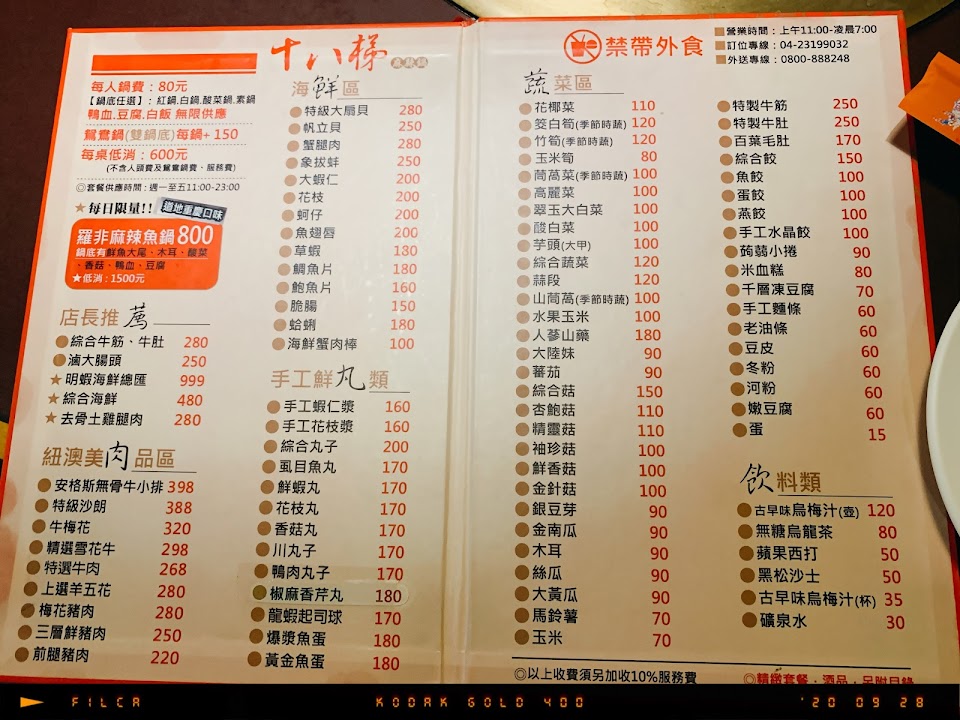 十八梯
麻辣鍋
每人鍋費：80元
【鍋底任選】：紅鍋.白鍋.酸菜鍋.素鍋
鴨血.豆腐.白飯 無限供應
鴛鴦鍋(雙鍋底)每鍋+150
每桌低消：600元
(不含人頭費及鴛鴦鍋費、服務費)
◎套餐供應時間：週一至五11:00-23:00
★每日限量!! 道地重慶口味
羅非麻辣魚鍋 800
鍋底有鮮魚大尾、木耳、酸菜
、香菇、鴨血、豆腐
★低消：1500元
店長推薦
綜合牛筋、牛肚 280
滷大腸頭 250
★明蝦海鮮總匯 999
★綜合海鮮 480
★去骨土雞腿肉 280
紐澳美肉品區
安格斯無骨牛小排 398
特級沙朗 388
牛梅花 320
精選雪花牛 298
特選牛肉 268
上選羊五花 280
梅花豬肉 280
三層鮮豬肉 250
前腿豬肉 220
海鮮區
特級大扇貝 280
帆立貝 250
蟹腿肉 280
象拔蚌 250
大蝦仁 200
花枝 200
蚵仔 200
魚翅唇 200
草蝦 180
鯛魚片 180
鮑魚片 160
脆腸 150
蛤蜊 180
海鮮蟹肉棒 100
手工鮮丸類
手工蝦仁漿 160
手工花枝漿 160
綜合丸子 200
虱目魚丸 170
鮮蝦丸 170
花枝丸 170
香菇丸 170
川丸子 170
鴨肉丸子 170
椒麻香芹丸 180
龍蝦起司球 170
爆漿魚蛋 180
黃金魚蛋 180
禁帶外食
營業時間：上午11:00-凌晨7:00
訂位專線：04-23199032
外送專線：0800-888248
蔬菜區
花椰菜 110
筊白筍(季節時蔬) 120
竹筍(季節時蔬) 120
玉米筍 80
茼萵菜(季節時蔬) 100
高麗菜 100
翠玉大白菜 100
酸白菜 100
芋頭(大甲) 100
綜合蔬菜 120
蒜段 120
山茼萵(季節時蔬) 100
水果玉米 100
人蔘山藥 180
大陸妹 90
蕃茄 90
綜合菇 150
杏鮑菇 110
精靈菇 110
袖珍菇 100
鮮香菇 100
金針菇 100
銀豆芽 90
金南瓜 90
木耳 90
絲瓜 90
大黃瓜 90
馬鈴薯 70
玉米 70
特製牛筋 250
特製牛肚 250
百葉毛肚 170
綜合餃 150
魚餃 100
蛋餃 100
燕餃 100
手工水晶餃 100
蒟蒻小捲 90
米血糕 80
千層凍豆腐 70
手工麵條 60
老油條 60
豆皮 60
冬粉 60
河粉 60
嫩豆腐 60
蛋 15
飲料類
古早味烏梅汁(壺) 120
無糖烏龍茶 80
蘋果西打 50
黑松沙士 50
古早味烏梅汁(杯) 35
礦泉水 30
◎以上收費須另加收10%服務費
◎精緻套餐，酒品，另附目錄
FILCA KODAK GOLD 400 '20 09 28